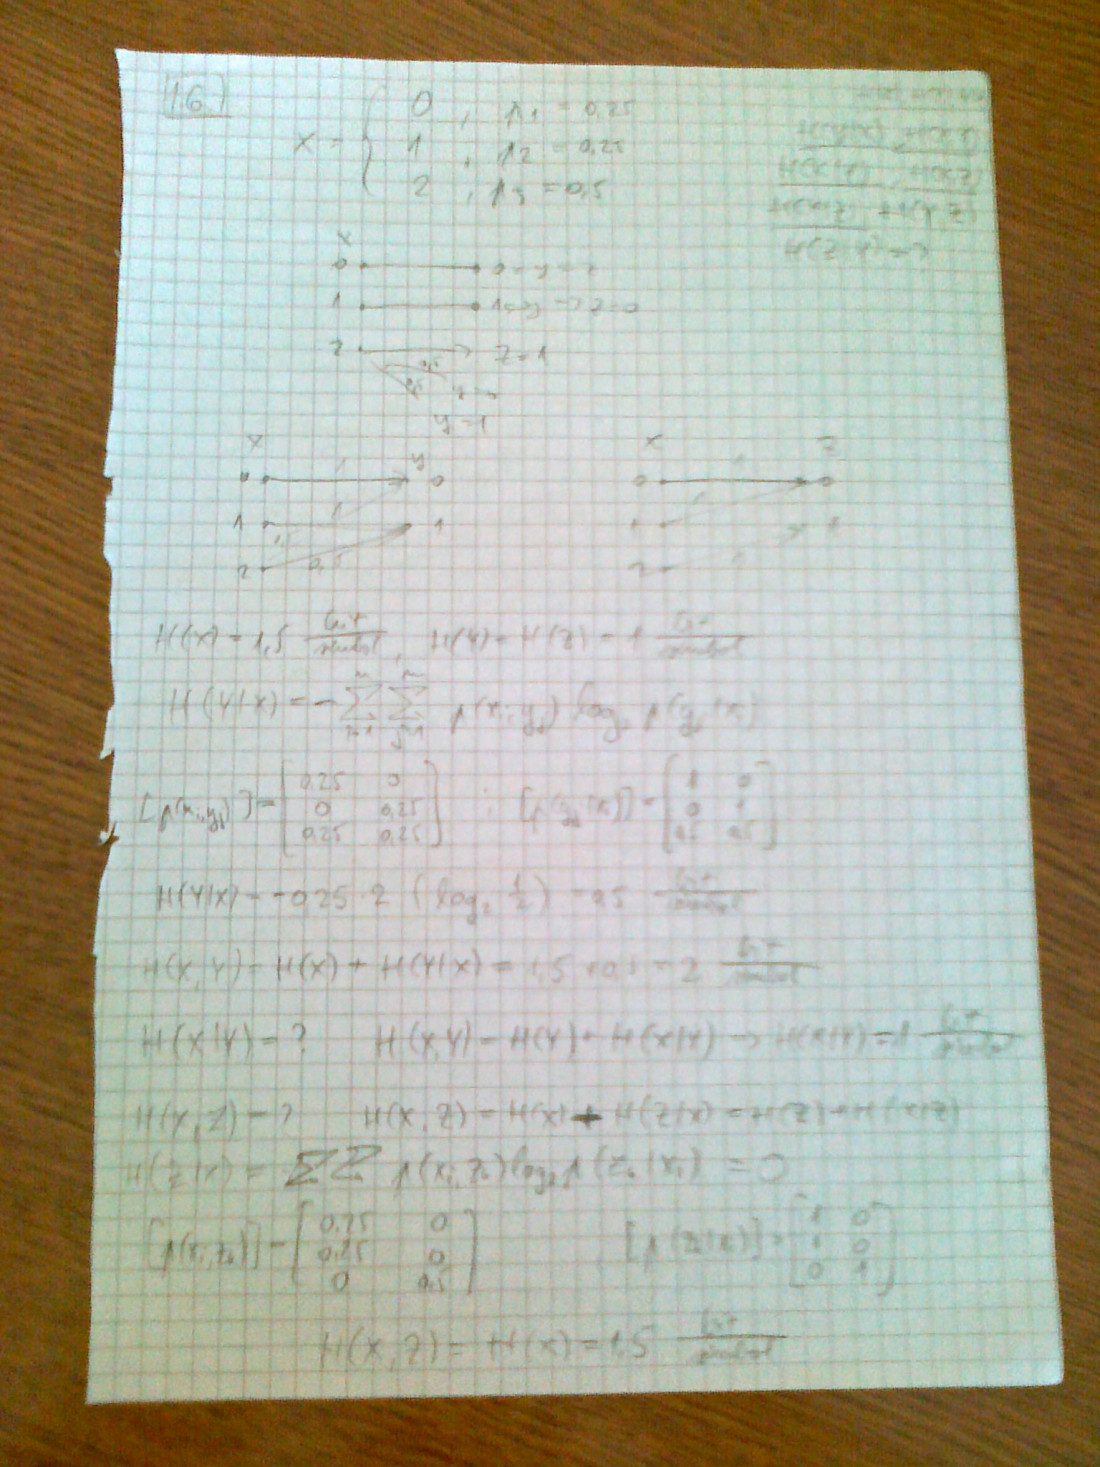 1.6.)
X = { 0 , p1 = 0,25
1 , p2 = 0,25
2 , p3 = 0,5
X
0
1 → z=0
2 z=1
0,5
y=1
X y
0 0
1 1
2 0,5
X z
0 0
1 1
2
H(X) = 1,5 bit/simbol , H(Y) = H(Z) = 1 bit/simbol
H(Y|X) = - Σ Σ p(xi,yj) log2 p(yj|xi)
[p(xi,yj)] = [ 0,25 0
0 0,25
0,25 0,25 ] ; [p(yj|xi)] = [ 1 0
0 1
0,5 0,5 ]
H(Y|X) = -0,25·2 (log2 1/2) = 0,5 bit/simbol
H(X,Y) = H(X) + H(Y|X) = 1,5 + 0,5 = 2 bit/simbol
H(X|Y) = ? H(X,Y) = H(Y) + H(X|Y) → H(X|Y) = 1 bit/simbol
H(X,Z) = ? H(X,Z) = H(X) + H(Z|X) = H(Z) + H(X|Z)
H(Z|X) = ΣΣ p(xi,zi) log2 p(zi|xi) = 0
[p(xi,zi)] = [ 0,25 0
0,25 0
0 0,5 ] [p(z|x)] = [ 1 0
1 0
0 1 ]
H(X,Z) = H(X) = 1,5 bit/simbol